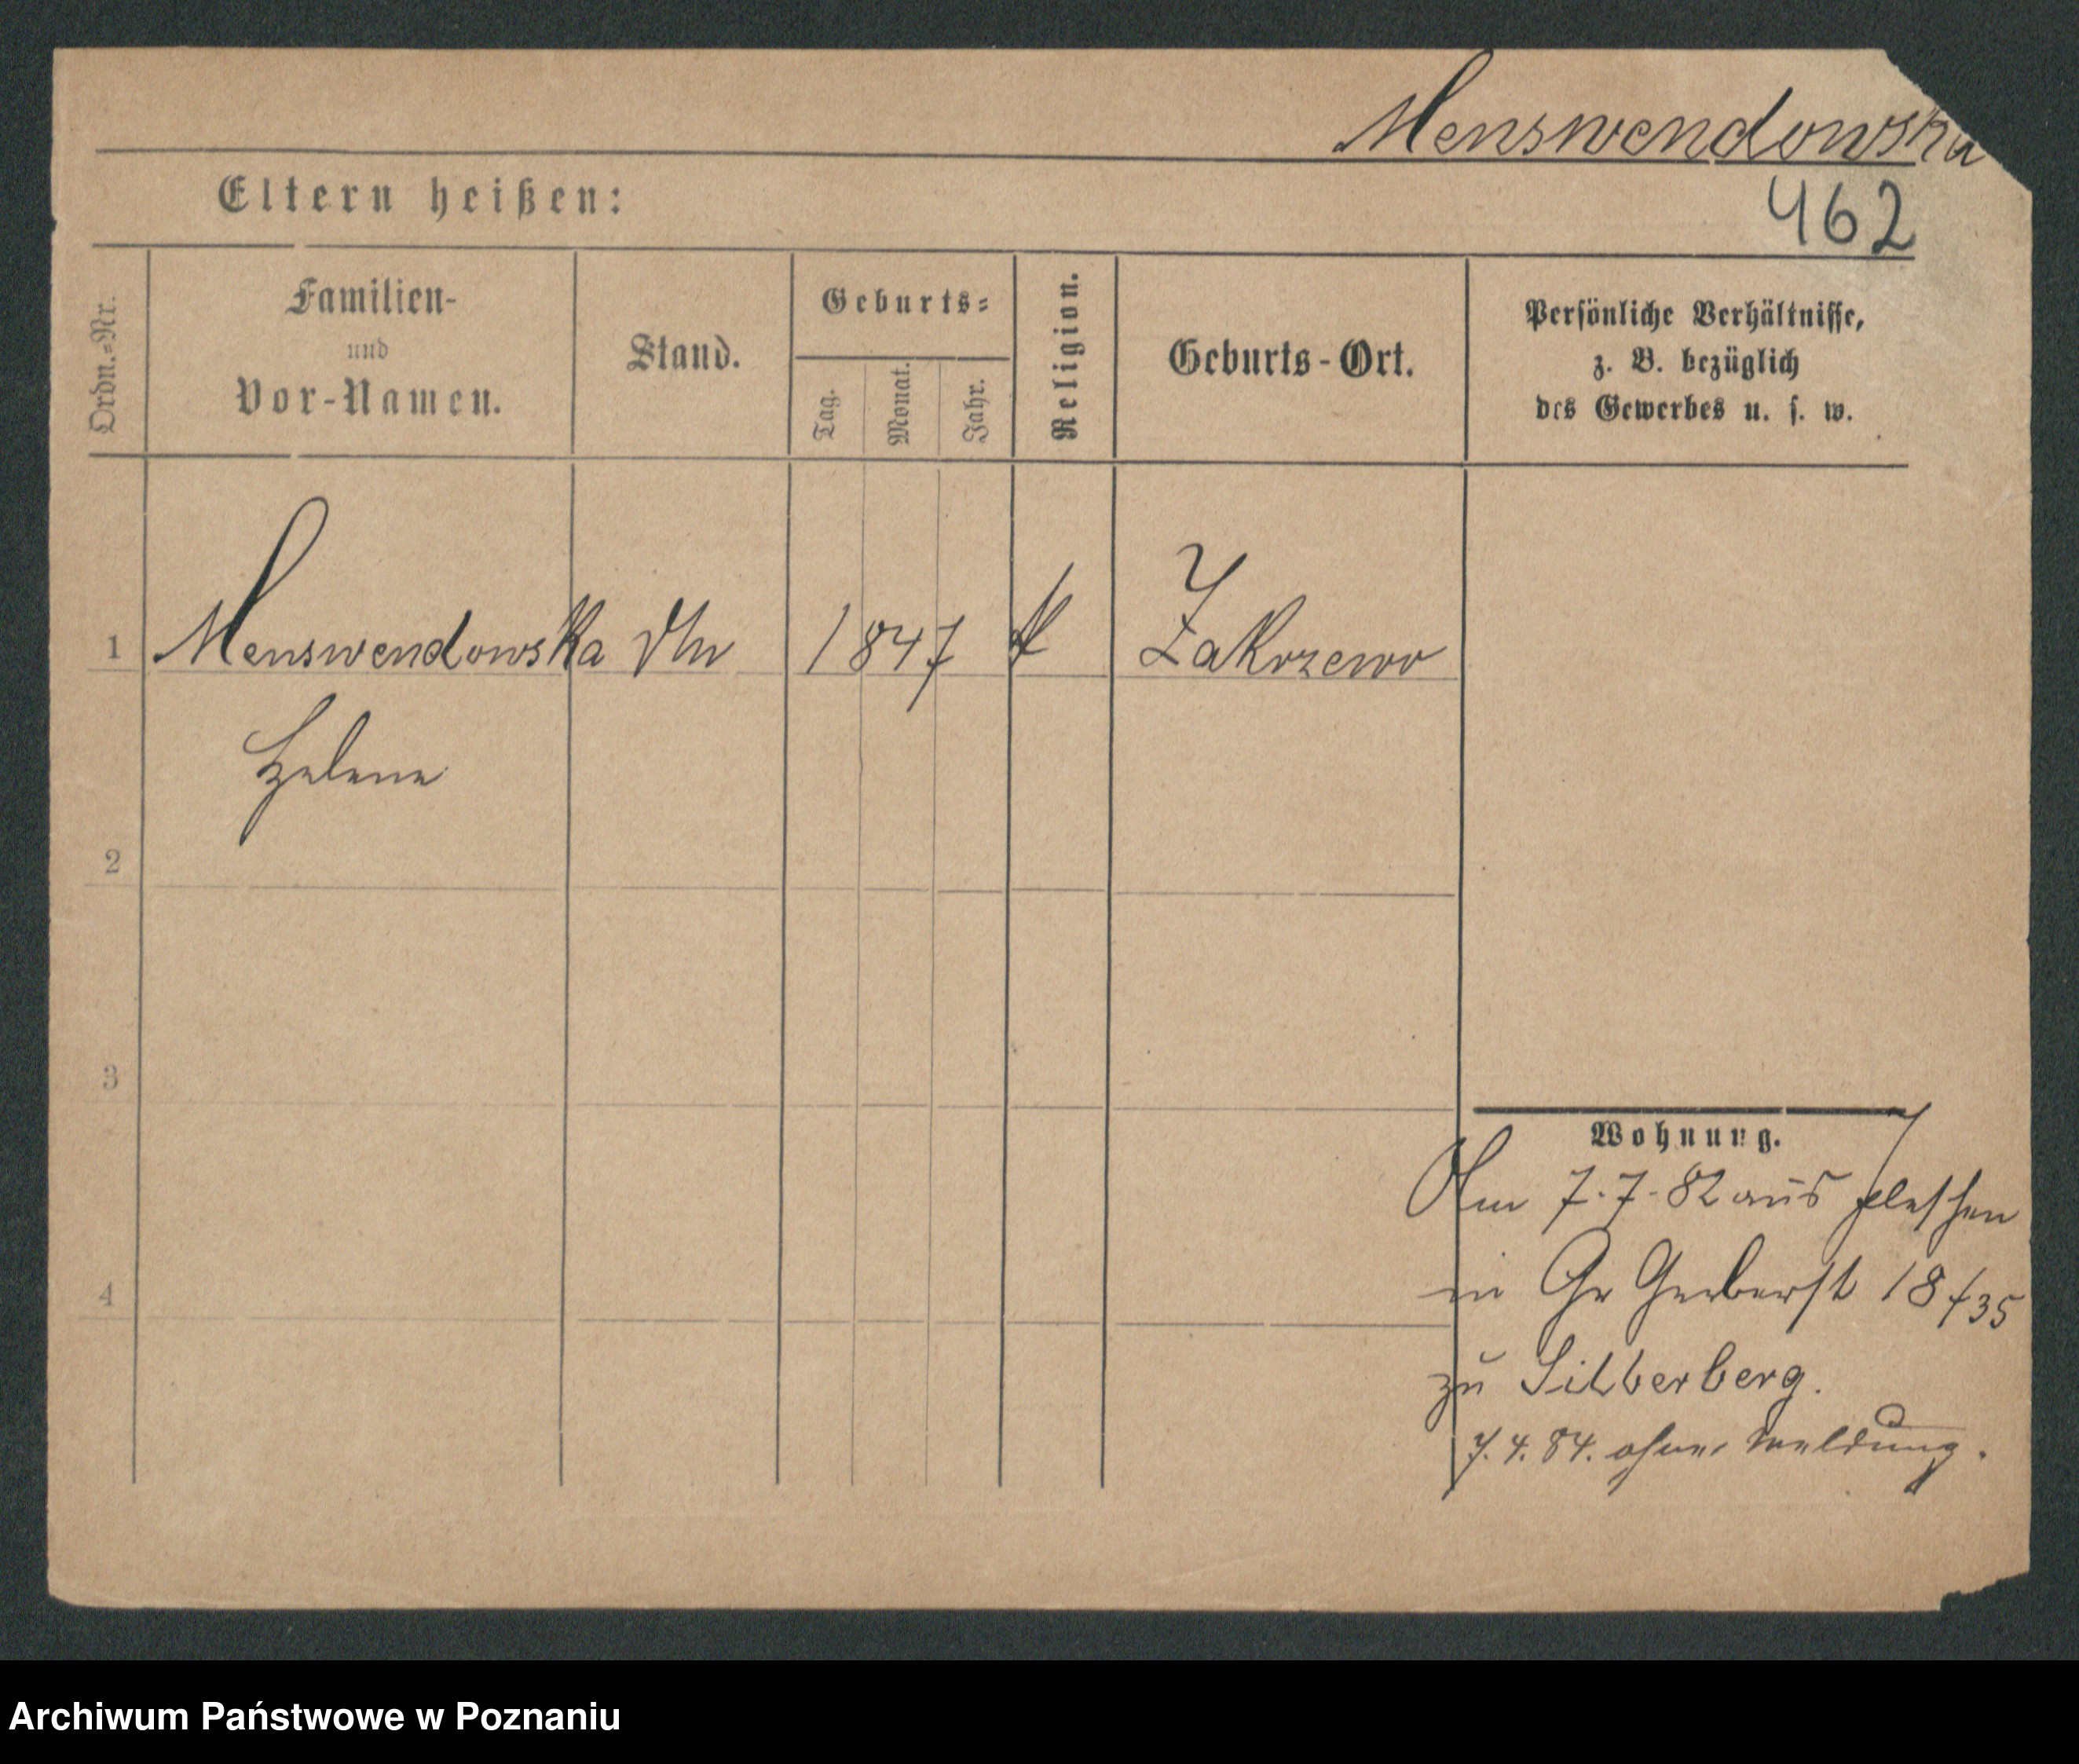 Menswendowska
Eltern heißen:
462
Ordn.=Nr.
Familien-
und
Vor-Namen.
Stand.
Geburts=
Tag.
Monat.
Jahr.
Religion.
Geburts-Ort.
Persönliche Verhältnisse,
z. B. bezüglich
des Gewerbes u. s. w.
1 Menswendowska 1847 Zakrzewo
Helene
2
3
4
Wohnung.
7.7.82 aus Pleschen
in Gr Gerberst 18/35
zu Silberberg.
7.4.84. ohne Meldung.
Archiwum Państwowe w Poznaniu